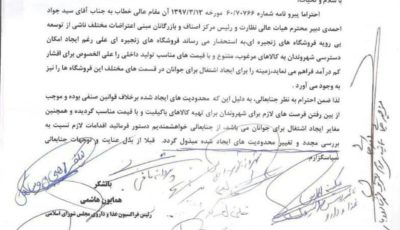 با سلام و تحیات؛
احتراما پیرو نامه شماره ۶۰/۷۰۷۶۶ مورخه ۱۳۹۷/۳/۱۳ آن مقام عالی خطاب به جناب آقای سید جواد
احمدی دبیر محترم هیات عالی نظارت و رئیس مرکز اصناف و بازرگانان مبنی اعتراضات مختلف ناشی از توسعه
بی رویه فروشگاه های زنجیره ای،به استحضار می رساند فروشگاه های زنجیره ای علی رغم ایجاد امکان
دسترسی شهروندان به کالاهای مرغوب، متنوع و با قیمت های مناسب تولید داخلی را علی الخصوص برای اقشار
کم درآمد فراهم می نماید،زمینه را برای ایجاد اشتغال برای جوانان در قسمت های مختلف این فروشگاه ها را نیز
به وجود می آورد .
لذا ضمن احترام به نظر جنابعالی، به دلیل این که محدودیت های ایجاد شده برخلاف قوانین صنفی بوده و موجب
از بین رفتن فرصت های لازم برای شهروندان برای تهیه کالاهای باکیفیت و با قیمت مناسب گردیده و همچنین
مغایر ایجاد اشتغال برای جوانان می باشد، از جنابعالی خواهشمندیم دستور فرمائید اقدامات لازم نسبت به
بررسی مجدد و تغییر محدودیت های ایجاد شده مبذول گردد. قبلا از بذل عنایت و توجهات جنابعالی
سپاسگزارم.
باتشکر
همایون هاشمی
رئیس فراکسیون غذا و داروی مجلس شورای اسلامی